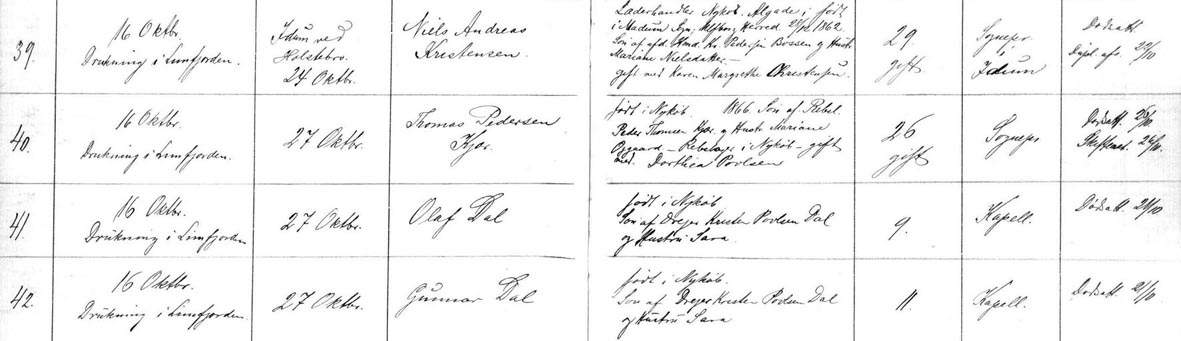 39.
16 Oktbr.
Drukning i Limfjorden.
Idum ved
Holstebro.
24 Oktbr.
Niels Andreas
Kristensen.
Læderhandler Nykøb. Algade, født
i Sogn, Herred 1862.
Søn af afd. Hmd. Bossen og Hust.
Mariane Nielsdatter –
gift med Karen Margrethe Christensen.
29.
gift.
Sognepr.
i
Idum
Dødsatt.
29/10
40.
16 Oktbr.
Drukning i Limfjorden.
27 Oktbr.
Tromas Pedersen
Kjær.
født i Nykøb. 1866. Søn af Rebsl.
Peder Thomsen Kjær og Hust. Mariane
– Rebslager i Nykøb – gift
med Dorthea Povlsen
26
gift
Sognepr
Dødsatt.
Skifteatt.
41.
16 Oktbr.
Drukning i Limfjorden
27 Oktbr.
Olaf Dal
født i Nykøb
Søn af Drejer Kristen Povlsen Dal
og Hustru Sara
9.
Kapell.
Dødsatt.
42.
16 Oktbr.
Drukning i Limfjorden.
27 Oktbr.
Gunnar Dal
født i Nykøb.
Søn af Drejer Kristen Povlsen Dal
og Hustru Sara
11.
Kapell.
Dødsatt.